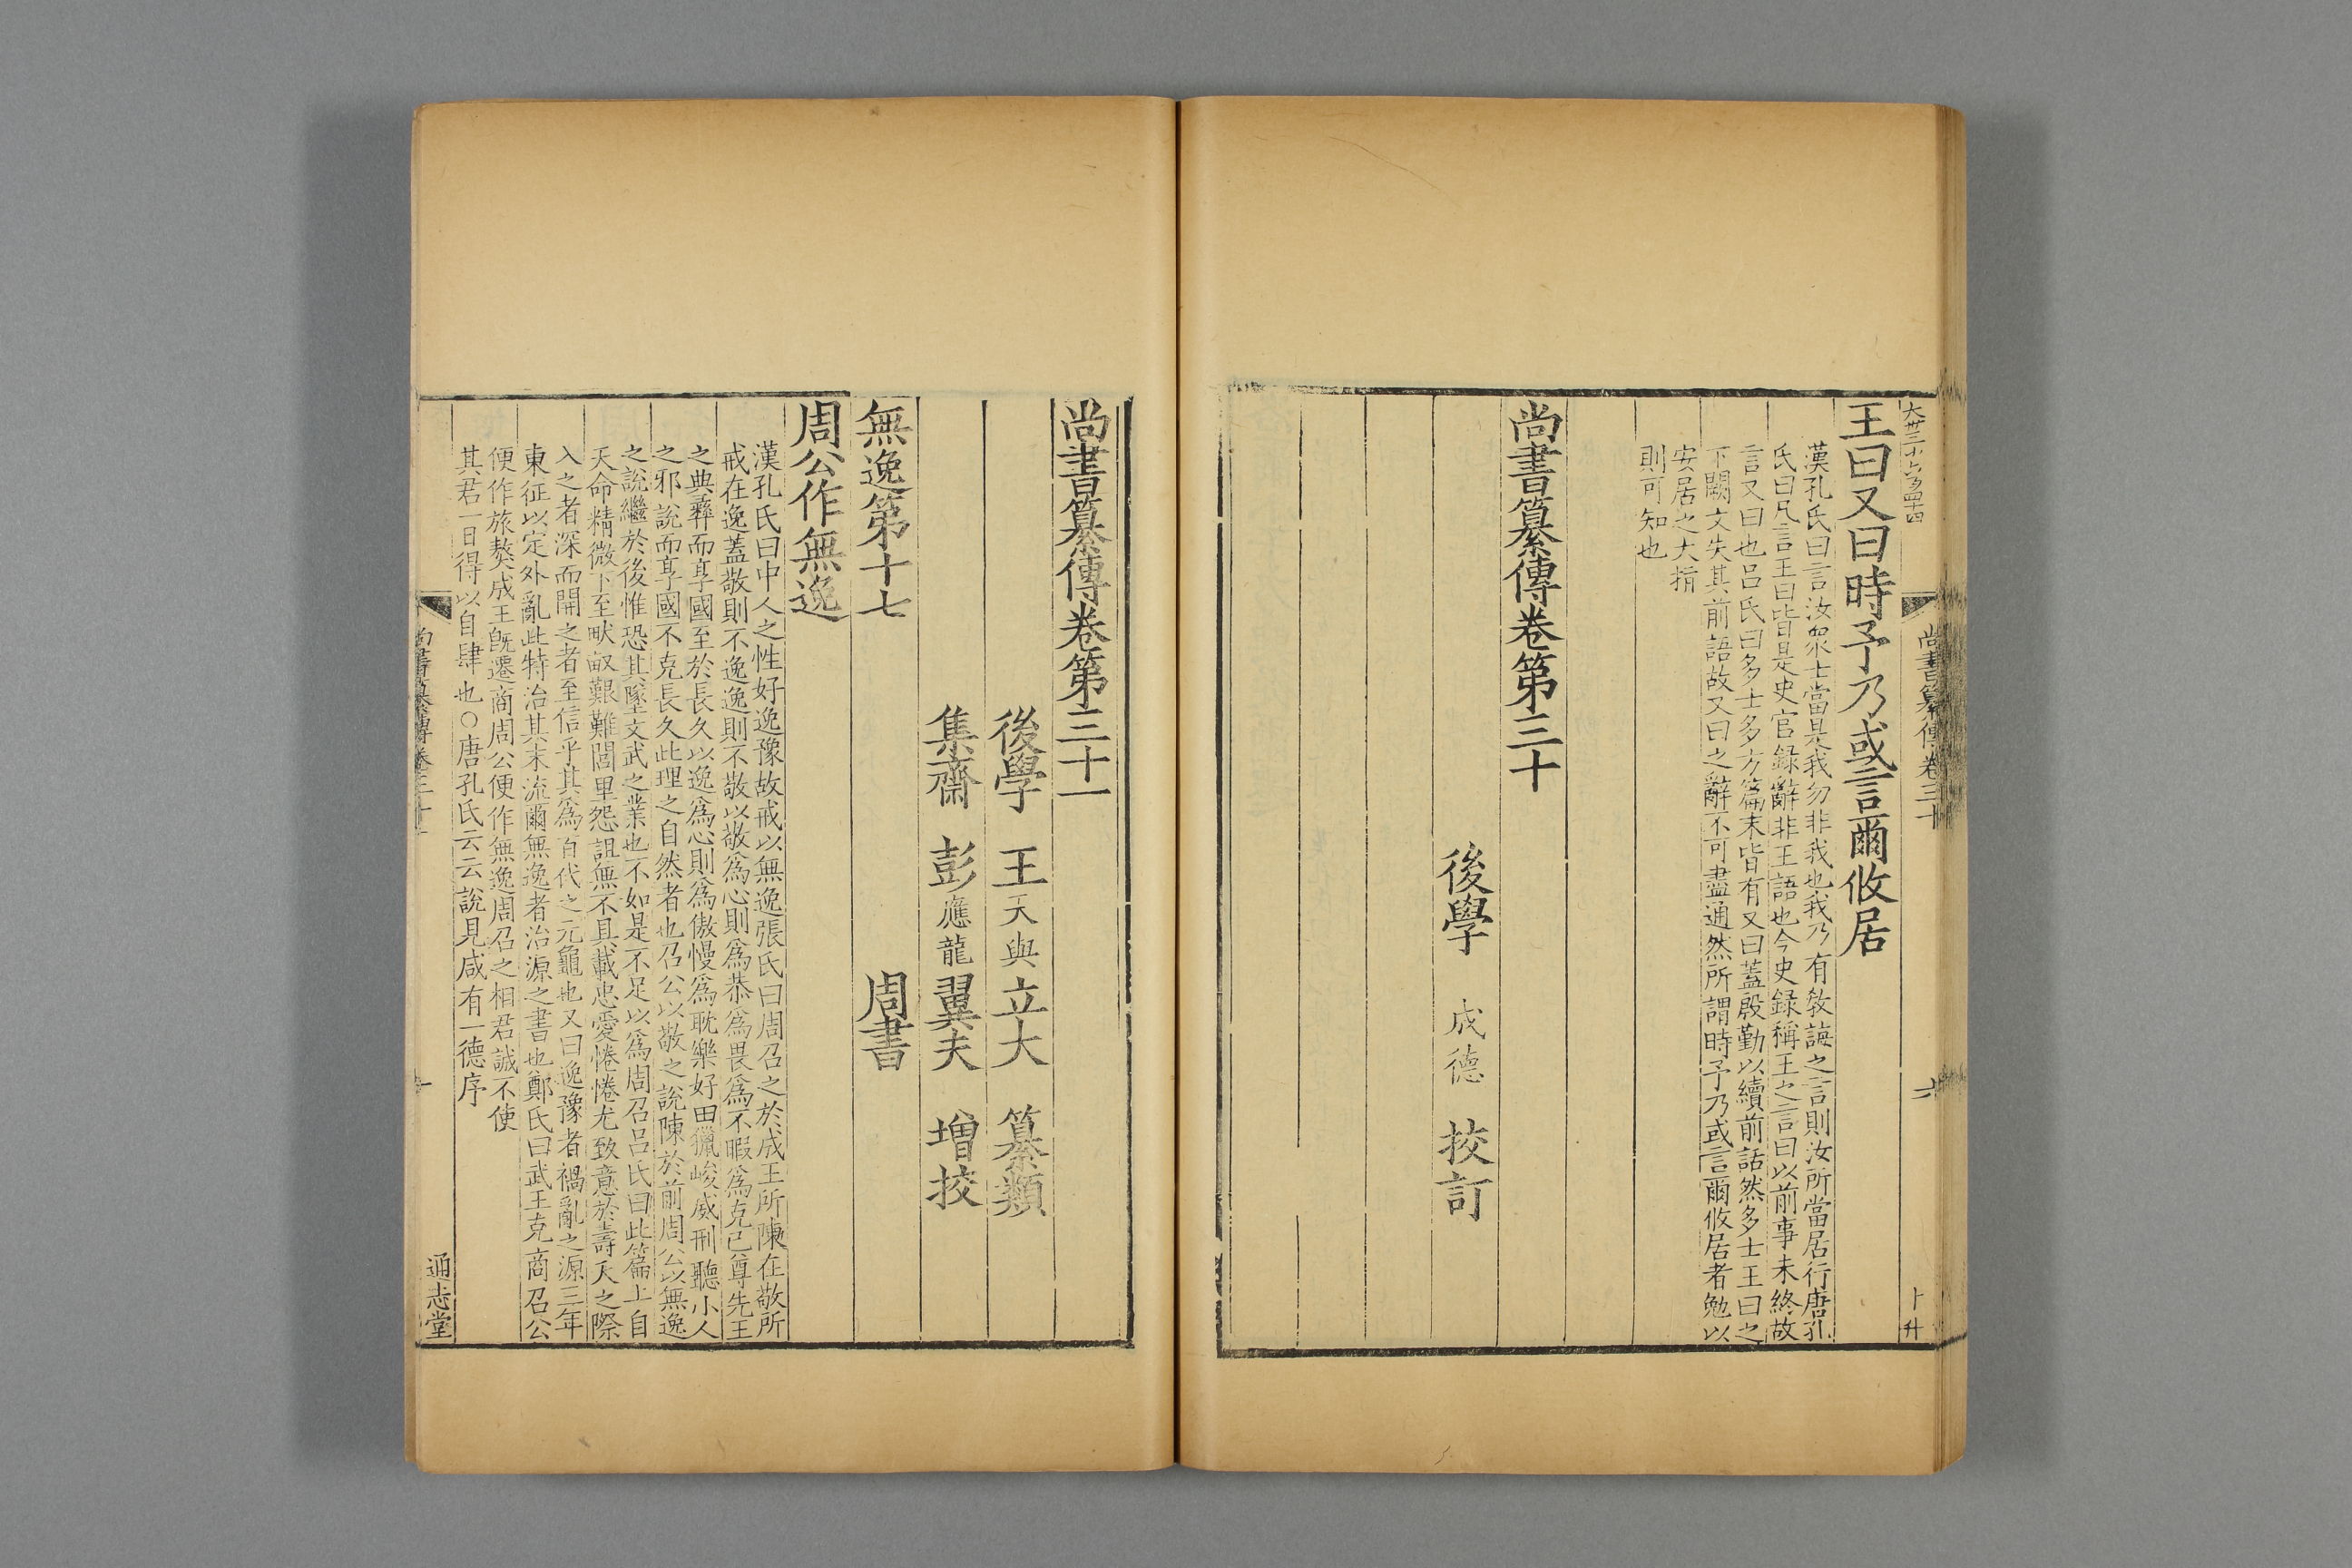 尚書纂傳卷三十
六
卜升
王曰又曰時予乃或言爾攸居
漢孔氏曰言汝衆士當是我勿非我也我乃有敎誨之言則汝所當居行唐孔
氏曰凡言王曰皆是史官録辭非王語也今史録稱王之言曰以前事未終故
言又曰也呂氏曰多士多方篇末皆有又曰蓋殷勤以續前話然多士王曰之
下闕文失其前語故又曰之辭不可盡通然所謂時予乃或言爾攸居者勉以
安居之大指
則可知也
尚書纂傳卷第三十
後學 成德 挍訂
尚書纂傳卷第三十一
後學 王天與立大 纂類
集齋 彭應龍翼夫 增挍
無逸第十七 周書
周公作無逸
漢孔氏曰中人之性好逸豫故戒以無逸張氏曰周召之於成王所陳在敬所
戒在逸蓋敬則不逸逸則不敬以敬爲心則爲恭爲畏爲不暇爲克己尊先王
之典彝而享國至於長久以逸爲心則爲傲慢爲耽樂好田獵峻威刑聽小人
之邪說而享國不克長久此理之自然者也召公以敬之說陳於前周公以無逸
之說繼於後惟恐其墜文武之業也不如是不足以爲周召呂氏曰此篇上自
天命精微下至畎畝艱難閭里怨詛無不具載忠愛惓惓尤致意於壽夭之際
入之者深而開之者至信乎其爲百代之元龜也又曰逸豫者禍亂之源三年
東征以定外亂此特治其末流爾無逸者治源之書也鄭氏曰武王克商召公
便作旅獒成王旣遷商周公便作無逸周召之相君誠不使
其君一日得以自肆也○唐孔氏云云說見咸有一德序
尚書纂傳卷三十一
一
通志堂